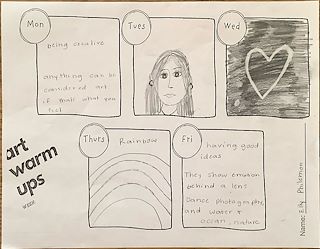 Mon
being creative
anything can be
considered art
if
what you
Tues
Wed
art
warm
ups
WEEK
Thurs
Rainbow
Fri
having good
ideas
They show emotion
behind a lens
Dance photography
and water +
ocean, nature
Name: Elly Philemon